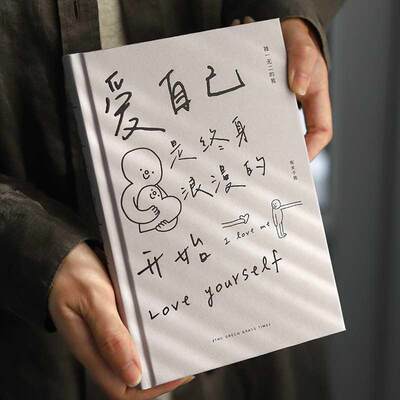 爱自己
是终身
浪漫的
开始
I love me
Love yourself
独一无二的我